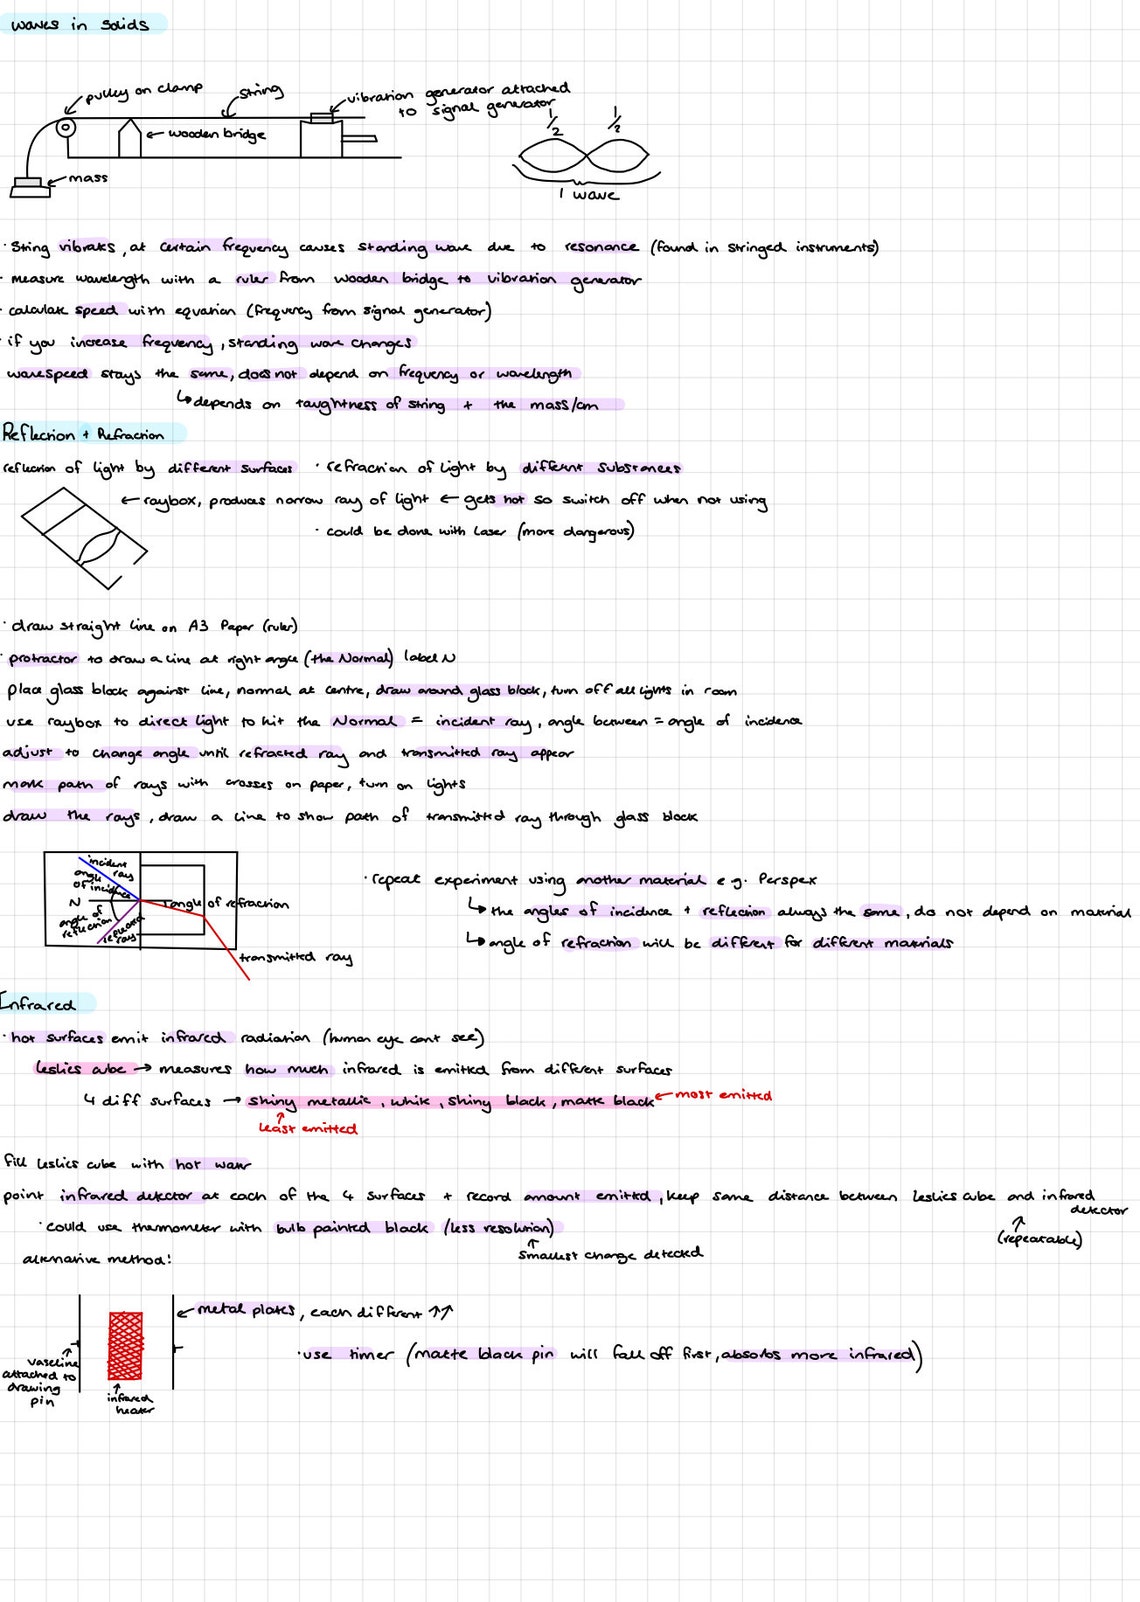 waves in solids
pulley on clamp
string
vibration generator attached
to signal generator
wooden bridge
mass
1/2
1/2
1 wave
· String vibrates, at certain frequency causes standing wave due to resonance (found in stringed instruments)
· measure wavelength with a ruler from wooden bridge to vibration generator
· calculate speed with equation (frequency from signal generator)
· if you increase frequency, standing wave changes
wavespeed stays the same, does not depend on frequency or wavelength
↳ depends on taughtness of string + the mass/cm
Reflection + Refraction
reflection of light by different surfaces · refraction of light by different substances
← raybox, produces narrow ray of light ← gets hot so switch off when not using
· could be done with laser (more dangerous)
· draw straight line on A3 Paper (ruler)
· protractor to draw a line at right angle (the Normal) label N
place glass block against line, normal at centre, draw around glass block, turn off all lights in room
use raybox to direct light to hit the Normal = incident ray, angle between = angle of incidence
adjust to change angle until refracted ray and transmitted ray appear
mark path of rays with crosses on paper, turn on lights
draw the rays, draw a line to show path of transmitted ray through glass block
incident ray
angle of incidence
N
angle of reflection
reflected ray
angle of refraction
transmitted ray
· repeat experiment using another material e.g. Perspex
↳ the angles of incidence + reflection always the same, do not depend on material
↳ angle of refraction will be different for different materials
Infrared
· hot surfaces emit infrared radiation (human eye cant see)
leslies cube → measures how much infrared is emitted from different surfaces
4 diff surfaces → shiny metallic, white, shiny black, matte black ← most emitted
↑
least emitted
fill leslies cube with hot water
point infrared detector at each of the 4 surfaces + record amount emitted, keep same distance between leslies cube and infrared
detector
↑
(repeatable)
· could use thermometer with bulb painted black (less resolution)
↑
smallest change detected
alternative method:
← metal plates, each different ↑↑
· use timer (matte black pin will fall off first, absorbs more infrared)
vaseline
attached to
drawing
pin
infrared
heater